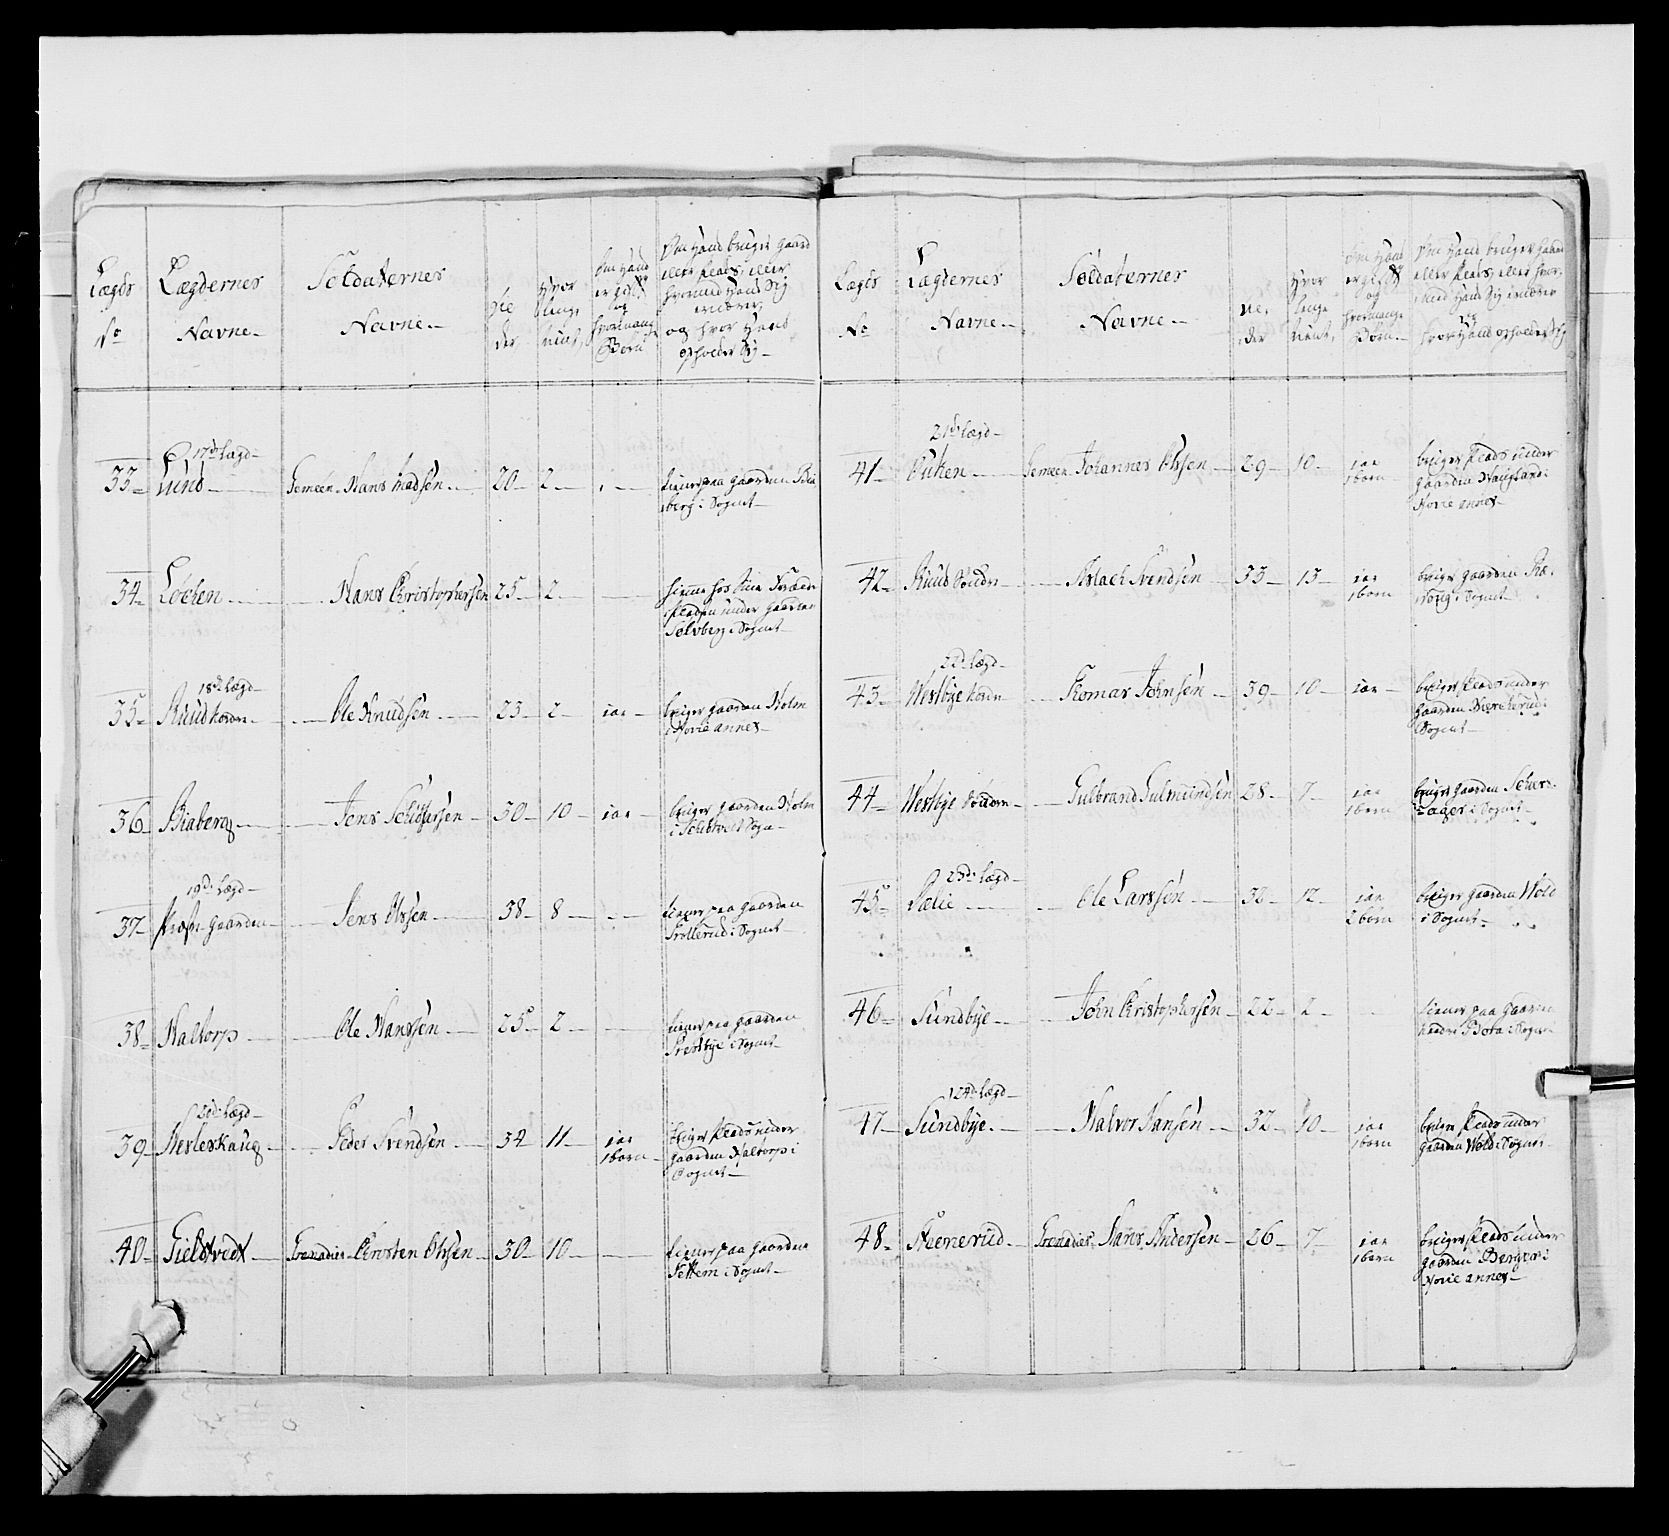 Lægds No
Lægdernes Navne
Soldaternes Navne
Al der
Hvor lenge tient
Om Hand er gift og hvormange Børn
Om Hand bruger Gaard eller Plads, eller hvormed Hand Sig ernærer, og hvor Hand opholder Sig
17de Lægd
33 Lund Gemeen Hans Madsen 20 2
tiener paa gaarden Bia
berg i Sognet
34 Løchen Hans Christophersen 25 2
pladsen under gaarden
Solvberg i Sognet
18de Lægd
35 Ruud Ole Knudsen 23 2 iaa
bruger gaarden Holm
i Hovie annex
36 Biaberg Jens 30 10 iaa
bruger gaarden Holm
i Sogn
19de Lægd
37 Præste gaarden Jens Olssen 38 8
tiener paa gaarden
Trøllerud i Sognet
38 Haltorp Ole Hanssen 25 2
tiener paa gaarden
Præstbye i Sognet
20de Lægd
39 Hesleskaug Peder Svendsen 34 11 iaa 1 barn
bruger Plads under
gaarden Haltorp i
Sognet
40 Gieldtvedt Grenadier Christen Olssen 30 10
tiener paa gaarden
i Sognet
Lægds No
Lægdernes Navne
Soldaternes Navne
Al der
Hvor lenge tient
Om Hand er gift og hvormange Børn
Om Hand bruger Gaard eller Plads, eller hvor med Hand Sig ernærer og hvor Hand opholder Sig
21de Lægd
41 Gemeen Johannes Olssen 29 10 iaa 1 barn
bruger Plads under
gaarden Haugland i
Hovie annex
42 Ruud Søndre Aslach Svendsen 33 13 iaa 1 barn
bruger gaarden
i Sognet
22de Lægd
43 Westbye Nordre Thomas Johnsen 39 10 iaa
bruger Plads under
gaarden
Sognet
44 Westbye Søndre Gulbrand Gulmundsen 28 7 iaa 1 barn
bruger gaarden
i Sognet
23de Lægd
45 Sælie Ole Larssen 32 12 iaa 2 børn
bruger gaarden Wold
i Sognet
46 Sundbye John Christophersen 22 2
tiener paa gaarden
i Sognet
24de Lægd
47 Sundbye Halvor Hansen 32 10 iaa 1 barn
bruger Plads under
gaarden Wold i Sognet
48 Grenadier Hans Andersen 26 7 iaa 1 barn
bruger Plads under
gaarden Berger i
Hovie annex